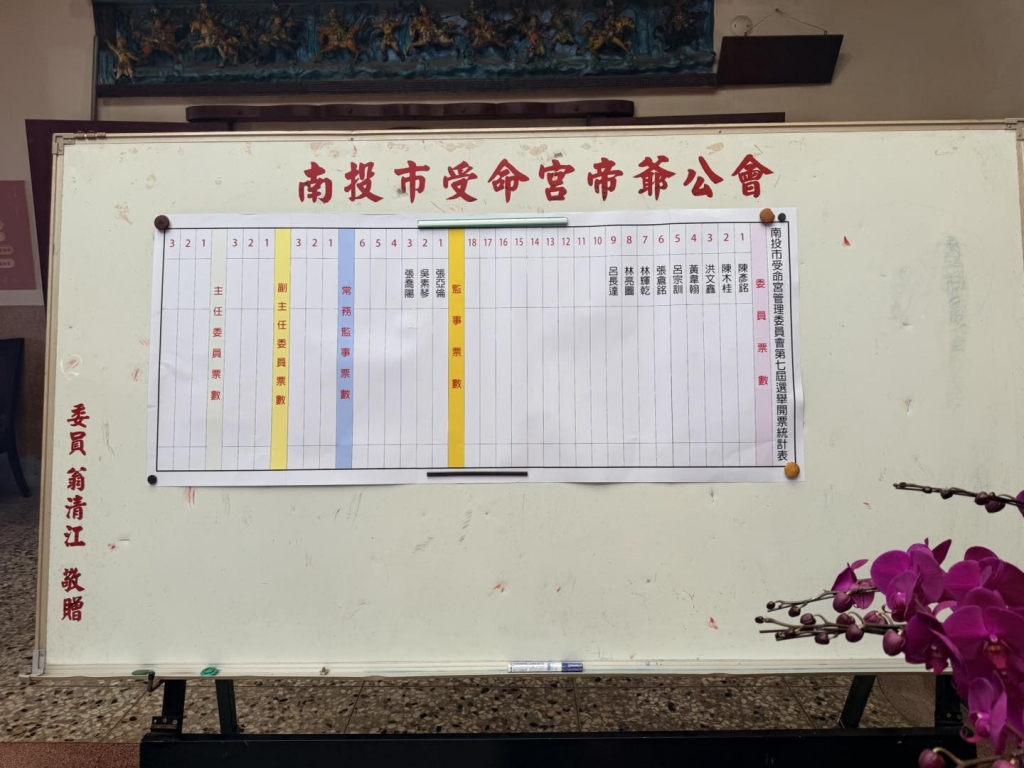 南投市受命宮帝爺公會
南投市受命宮管理委員會第七屆選舉開票統計表
委員票數
1 陳彥銘
2 陳木桂
3 洪文鑫
4 黃韋翰
5 呂宗訓
6 張倉銘
7 林輝乾
8 林亮圖
9 呂長達
10
11
12
13
14
15
16
17
18
監事票數
1 張亞倫
2 吳素琴
3 張喬陽
4
5
6
常務監事票數
1
2
3
副主任委員票數
1
2
3
主任委員票數
1
2
3
委員 翁清江 敬贈